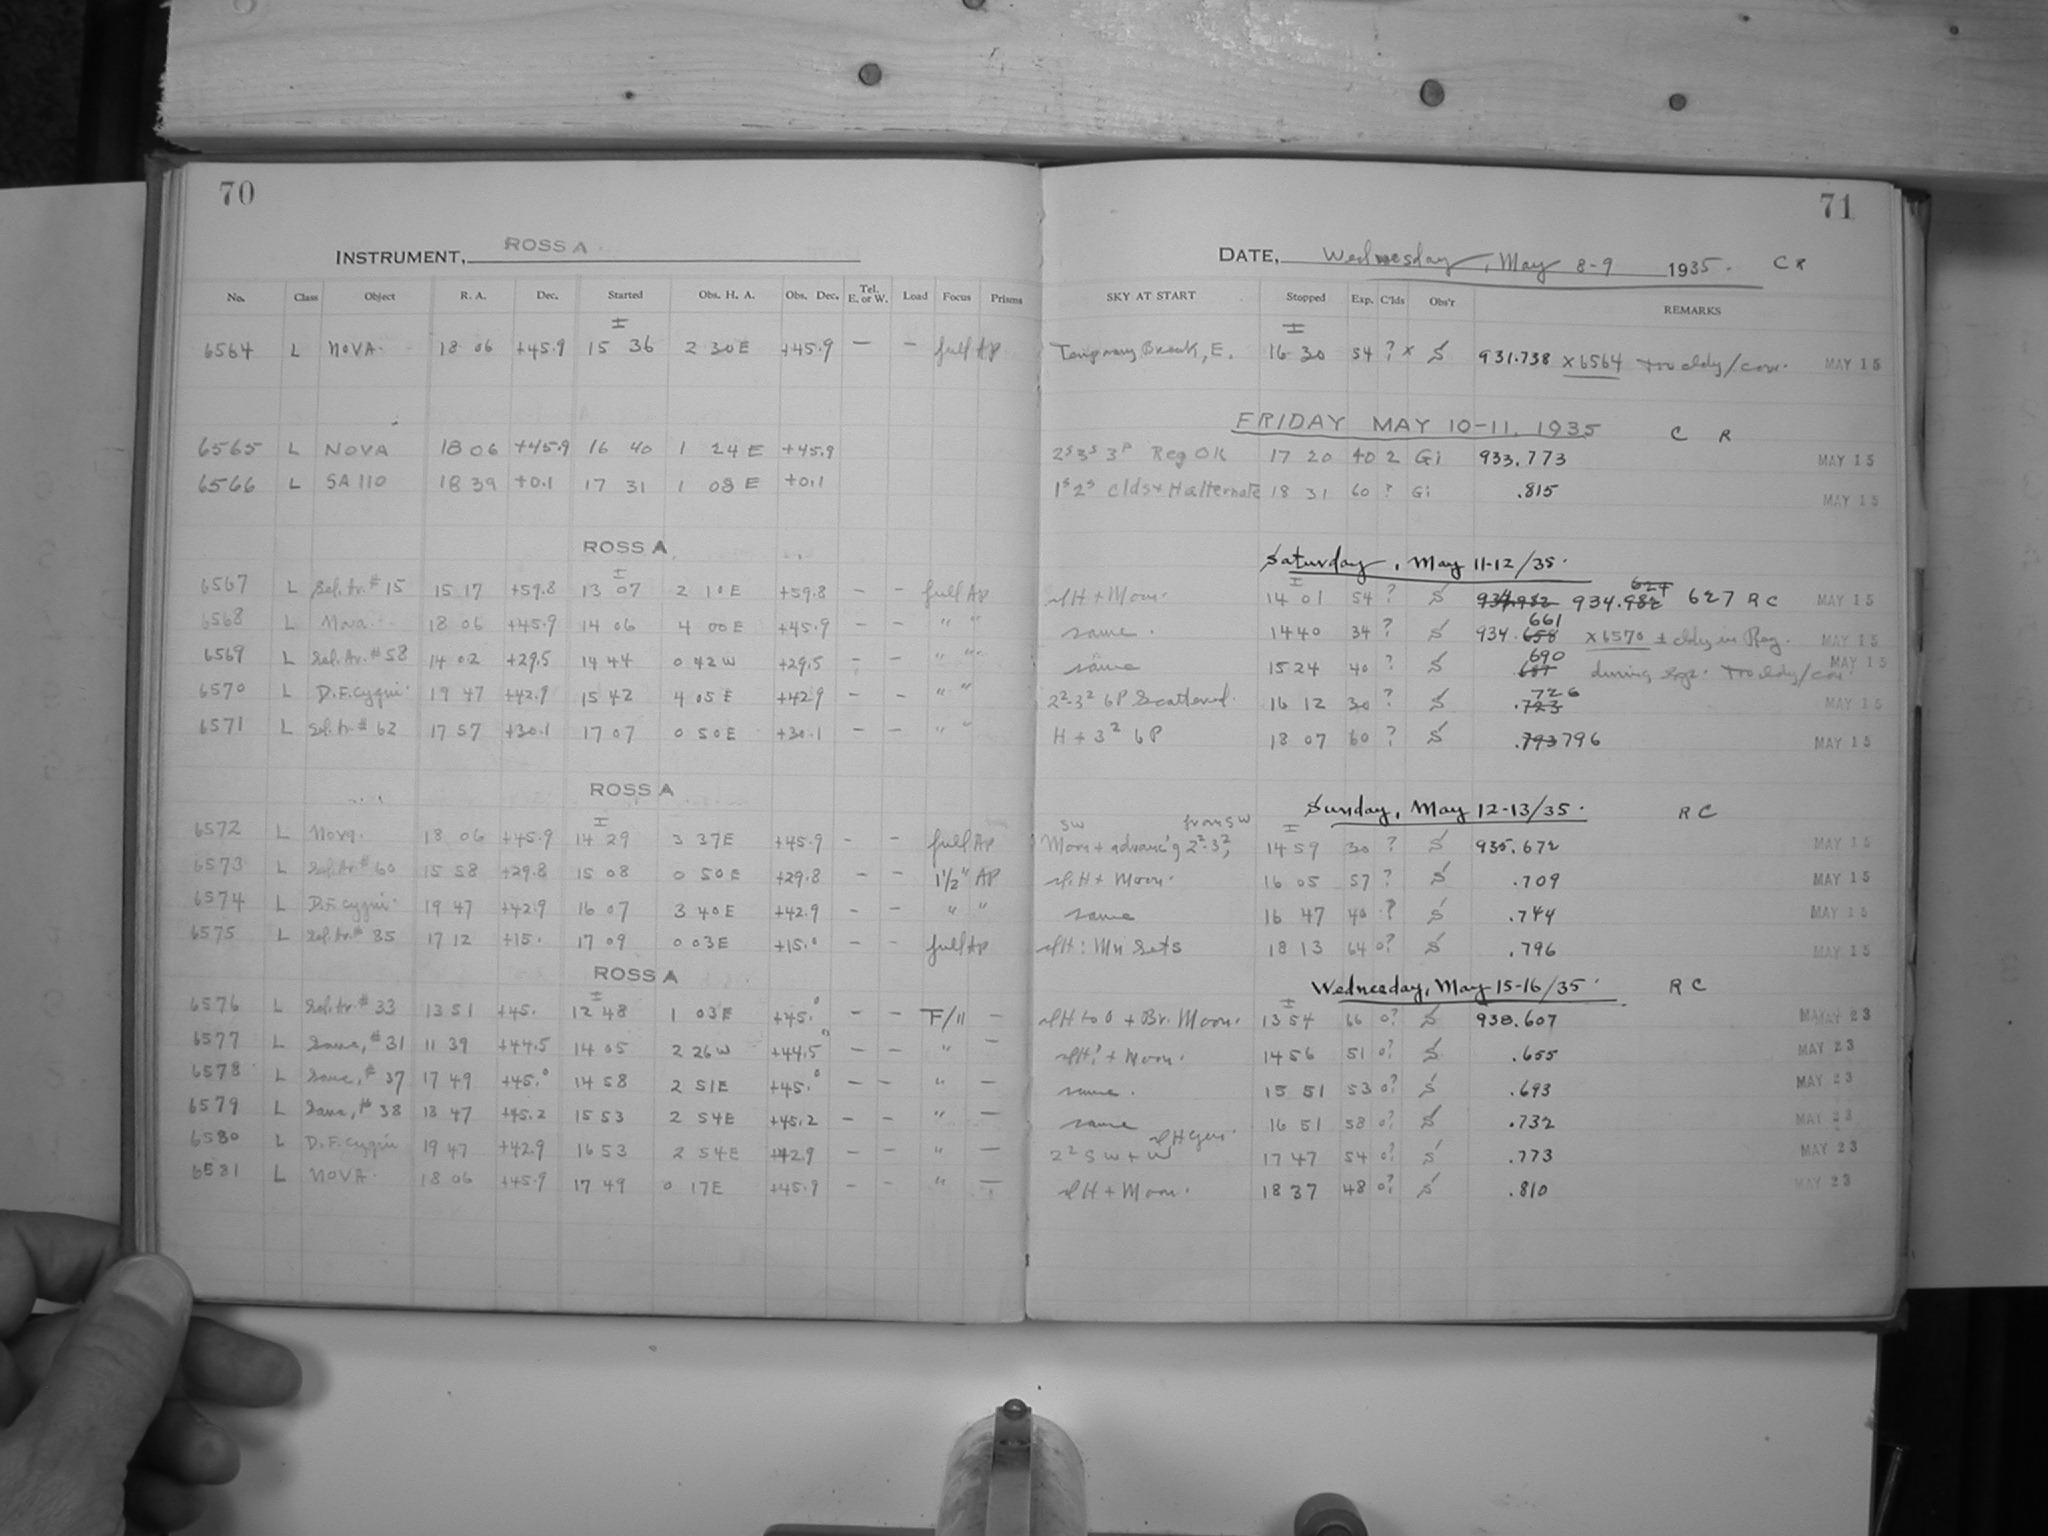 70
INSTRUMENT, ROSS A
No. Class Object R. A. Dec. Started Obs. H. A. Obs. Dec. Tel. E. or W. Load Focus Prisms
6564 L NOVA. 18 06 +45.9 15 36 2 30E +45.9 — — full Ap
6565 L NOVA 18 06 +45.9 16 40 1 24 E +45.9
6566 L SA 110 18 39 +0.1 17 31 1 08 E +0.1
ROSS A
6567 L Sel. Ar. # 15 15 17 +59.8 13 07 2 10E +59.8 — — full Ap
6568 L Nova. 18 06 +45.9 14 06 4 00E +45.9 — — " "
6569 L Sel. Ar. # 58 14 02 +29.5 14 44 0 42W +29.5 — — " "
6570 L D.F. Cygni. 19 47 +42.9 15 42 4 05 E +42.9 — — " "
6571 L Sel. Ar. # 62 17 57 +30.1 17 07 0 50E +30.1 — — " "
ROSS A
6572 L Nova. 18 06 +45.9 14 29 3 37E +45.9 — — full Ap
6573 L Sel. Ar. # 60 15 58 +29.8 15 08 0 50E +29.8 — — 1½" AP
6574 L D.F. Cygni. 19 47 +42.9 16 07 3 40E +42.9 — — " "
6575 L Sel. Ar. # 85 17 12 +15. 17 09 0 03E +15.0 — — full Ap
ROSS A
6576 L Sel. Ar. # 33 13 51 +45. 12 48 1 03E +45.0 — — F/11 —
6577 L Same, # 31 11 39 +44.5 14 05 2 26W +44.5 — — " —
6578 L Same, # 37 17 49 +45.0 14 58 2 51E +45.0 — — " —
6579 L Same, # 38 18 47 +45.2 15 53 2 54E +45.2 — — " —
6580 L D.F. Cygni 19 47 +42.9 16 53 2 54E +42.9 — — " —
6581 L NOVA. 18 06 +45.9 17 49 0 17E +45.9 — — " —
71
DATE, Wednesday, May 8-9 1935. C R
SKY AT START Stopped Exp. C'lds Obs'r REMARKS
Temporary Break, E. 16 30 54 ? x S 931.738 x6564 cldy/ MAY 15
FRIDAY MAY 10-11, 1935 C R
2s3s 3P Reg OK 17 20 40 2 Gi 933.773 MAY 15
1s2s clds + H alternate 18 31 60 ? Gi .815 MAY 15
Saturday, May 11-12/35.
624
H + Moon. 14 01 54 ? S 934.982 934.982 627 R C MAY 15
661
same. 14 40 34 ? S 934.658 x6570 cldy in Reg. MAY 15
690
same 15 24 40 ? S .687 during cldy/ MAY 15
726
2²-3² 6P Scattered. 16 12 30 ? S .723 MAY 15
H + 3² 6P 18 07 60 ? S .793 796 MAY 15
Sunday, May 12-13/35. R C
SW from SW
Moon + advanc'g 2²-3², 14 59 30 ? S 935.672 MAY 15
sl. H + Moon. 16 05 57 ? S .709 MAY 15
same 16 47 40 ? S .744 MAY 15
sl H: Mn Sets 18 13 64 0? S .796 MAY 15
Wednesday, May 15-16/35. R C
sl H to 0 + Br. Moon. 13 54 66 0? S 938.607 MAY 23
sl H? + Moon. 14 56 51 0? S .655 MAY 23
same. 15 51 53 0? S .693 MAY 23
same 16 51 58 0? S .732 MAY 23
2² SW + W sl H 17 47 54 0? S .773 MAY 23
sl H + Moon. 18 37 48 0? S .810 MAY 23